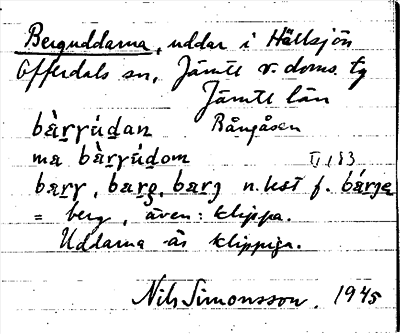 Berguddarna, uddar i Hällsjön
Offerdals sn, Jämtl v. doms. tg
Jämtl län
bàrrúdan Rångåsen
ma bàrrúdom II 183
bærr, bærg, bærg n. best f. bérge
= berg, även: klippa.
Uddarna är klippiga.
Nils Simonsson. 1945